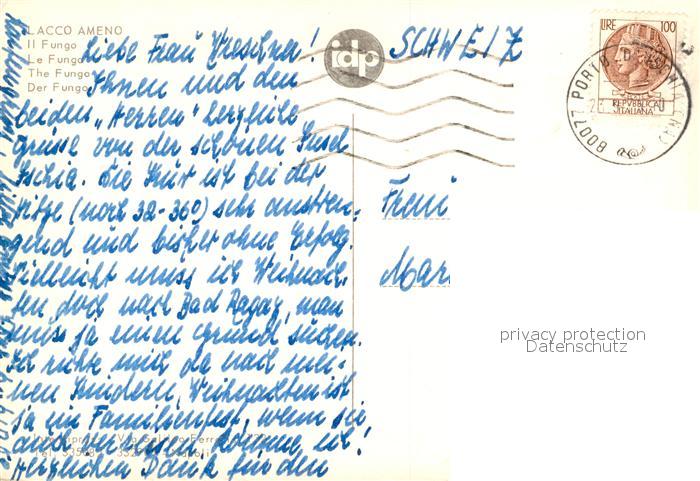 LACCO AMENO
Il Fungo
Le Fungo
The Fungo
Der Fungo
idp
SCHWEIZ
LIRE 100
REPVBBLICA
ITALIANA
80077 PORTO D'ISCHIA (NA)
Liebe Frau Dreschner!
Ihnen und den
beiden „Herren" herzliche
Grüsse von der schönen Insel
Ischia. Die Kur ist bei der
Hitze (noch 32-36°) sehr anstren-
gend und bisher ohne Erfolg.
Vielleicht muss ich Weihnach-
ten doch nach Bad Ragaz, man
muss ja einen Grund suchen.
Ich richte mich da nach mei-
nen Kindern, Weihnachten ist
ja ein Familienfest, wenn sie
auch verreisen, komme ich!
Herzlichen Dank für den
Frau
Mar
privacy protection
Datenschutz